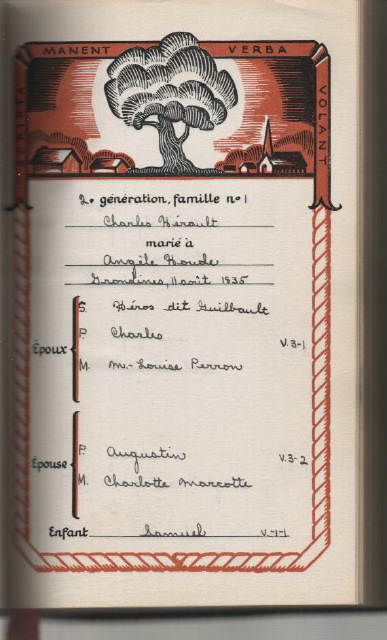 MANENT VERBA
SCRIPTA
VOLANT
2e génération, famille no 1
Charles Hérault
marié à
Angèle Houde
Grondines, 11 août 1835
Époux
S. Héros dit Guilbault
P. Charles V.3-1
M. M.-Louise Perron
Épouse
P. Augustin V.3-2
M. Charlotte Marcotte
Enfant Samuel V-1-1